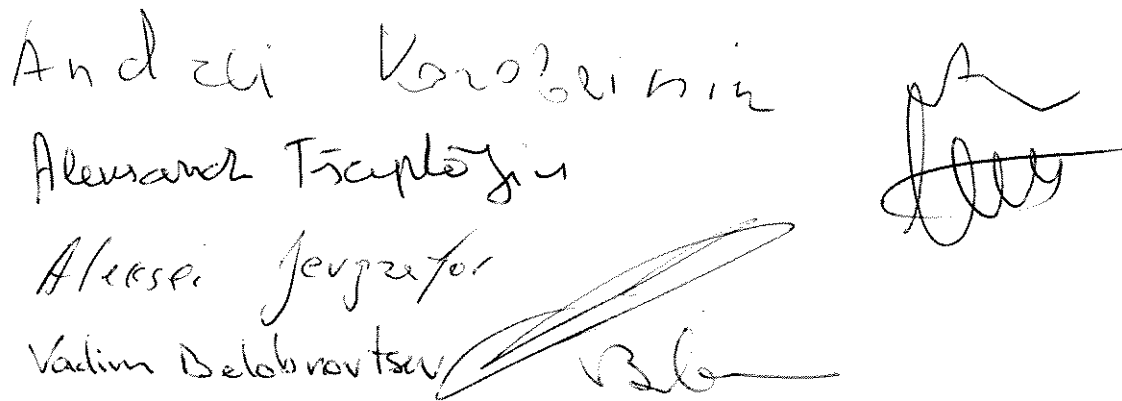 Andrei
Aleksandr Tšaplõgin
Aleksei Jevgrafov
Vadim Belobrovtsev